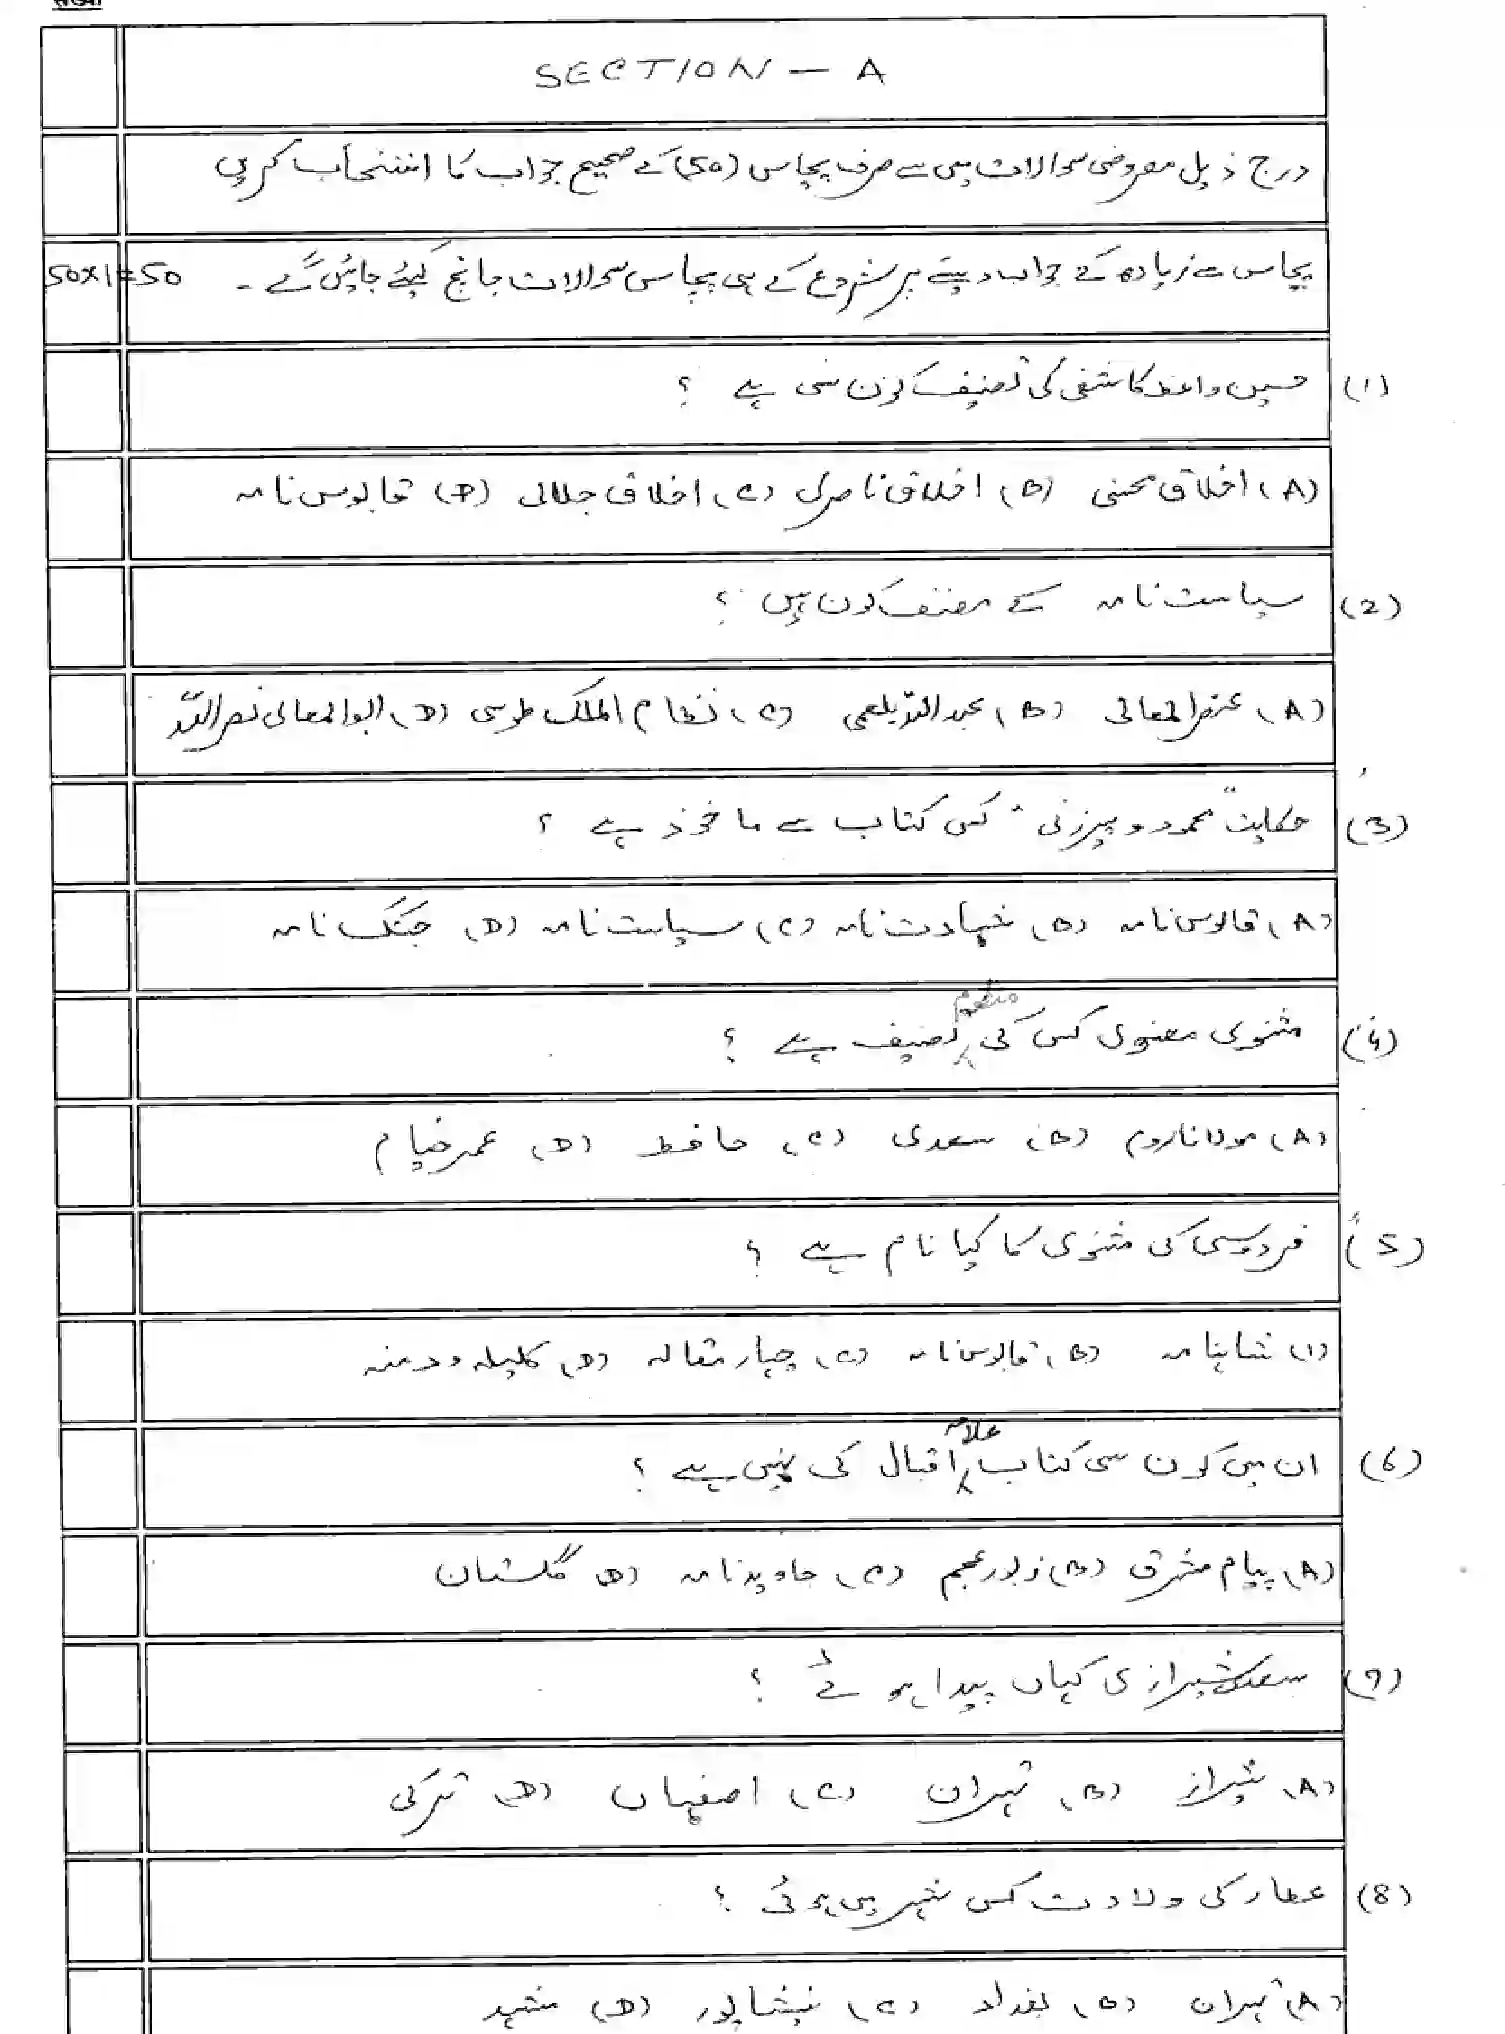 SECTION – A
درج ذیل معروضی سوالات میں سے صرف پچاس (50) کے صحیح جواب کا انتخاب کریں
پچاس سے زیادہ کے جواب دینے پر شروع کے ہی پچاس سوالات جانچ کیئے جائیں گے ۔ 50x1=50
(1) حسین واعظ کاشفی کی تصنیف کون سی ہے ؟
(A) اخلاق محسنی (B) اخلاق ناصری (C) اخلاق جلالی (D) قابوس نامہ
(2) سیاست نامہ کے مصنف کون ہیں ؟
(A) عنصر المعالی (B) عبداللہ بلعمی (C) نظام الملک طوسی (D) ابوالمعالی نصراللہ
(3) حکایت "محمود و پیرزنی" کس کتاب سے ماخوذ ہے ؟
(A) قابوس نامہ (B) شہادت نامہ (C) سیاست نامہ (D) جنگ نامہ
(4) مثنوی معنوی کس کی تصنیف ہے ؟
(A) مولانا روم (B) سعدی (C) حافظ (D) عمر خیام
(5) فردوسی کی مثنوی کا کیا نام ہے ؟
(1) شاہنامہ (B) قابوس نامہ (C) چہار مقالہ (D) کلیلہ و دمنہ
(6) ان میں کون سی کتاب علامہ اقبال کی نہیں ہے ؟
(A) پیام مشرق (B) زبور عجم (C) جاوید نامہ (D) گلستان
(7) سعدی شیرازی کہاں پیدا ہوئے ؟
(A) شیراز (B) تہران (C) اصفہان (D) ترکی
(8) عطار کی ولادت کس شہر میں ہوئی ؟
(A) تہران (B) بغداد (C) نیشاپور (D) مشہد